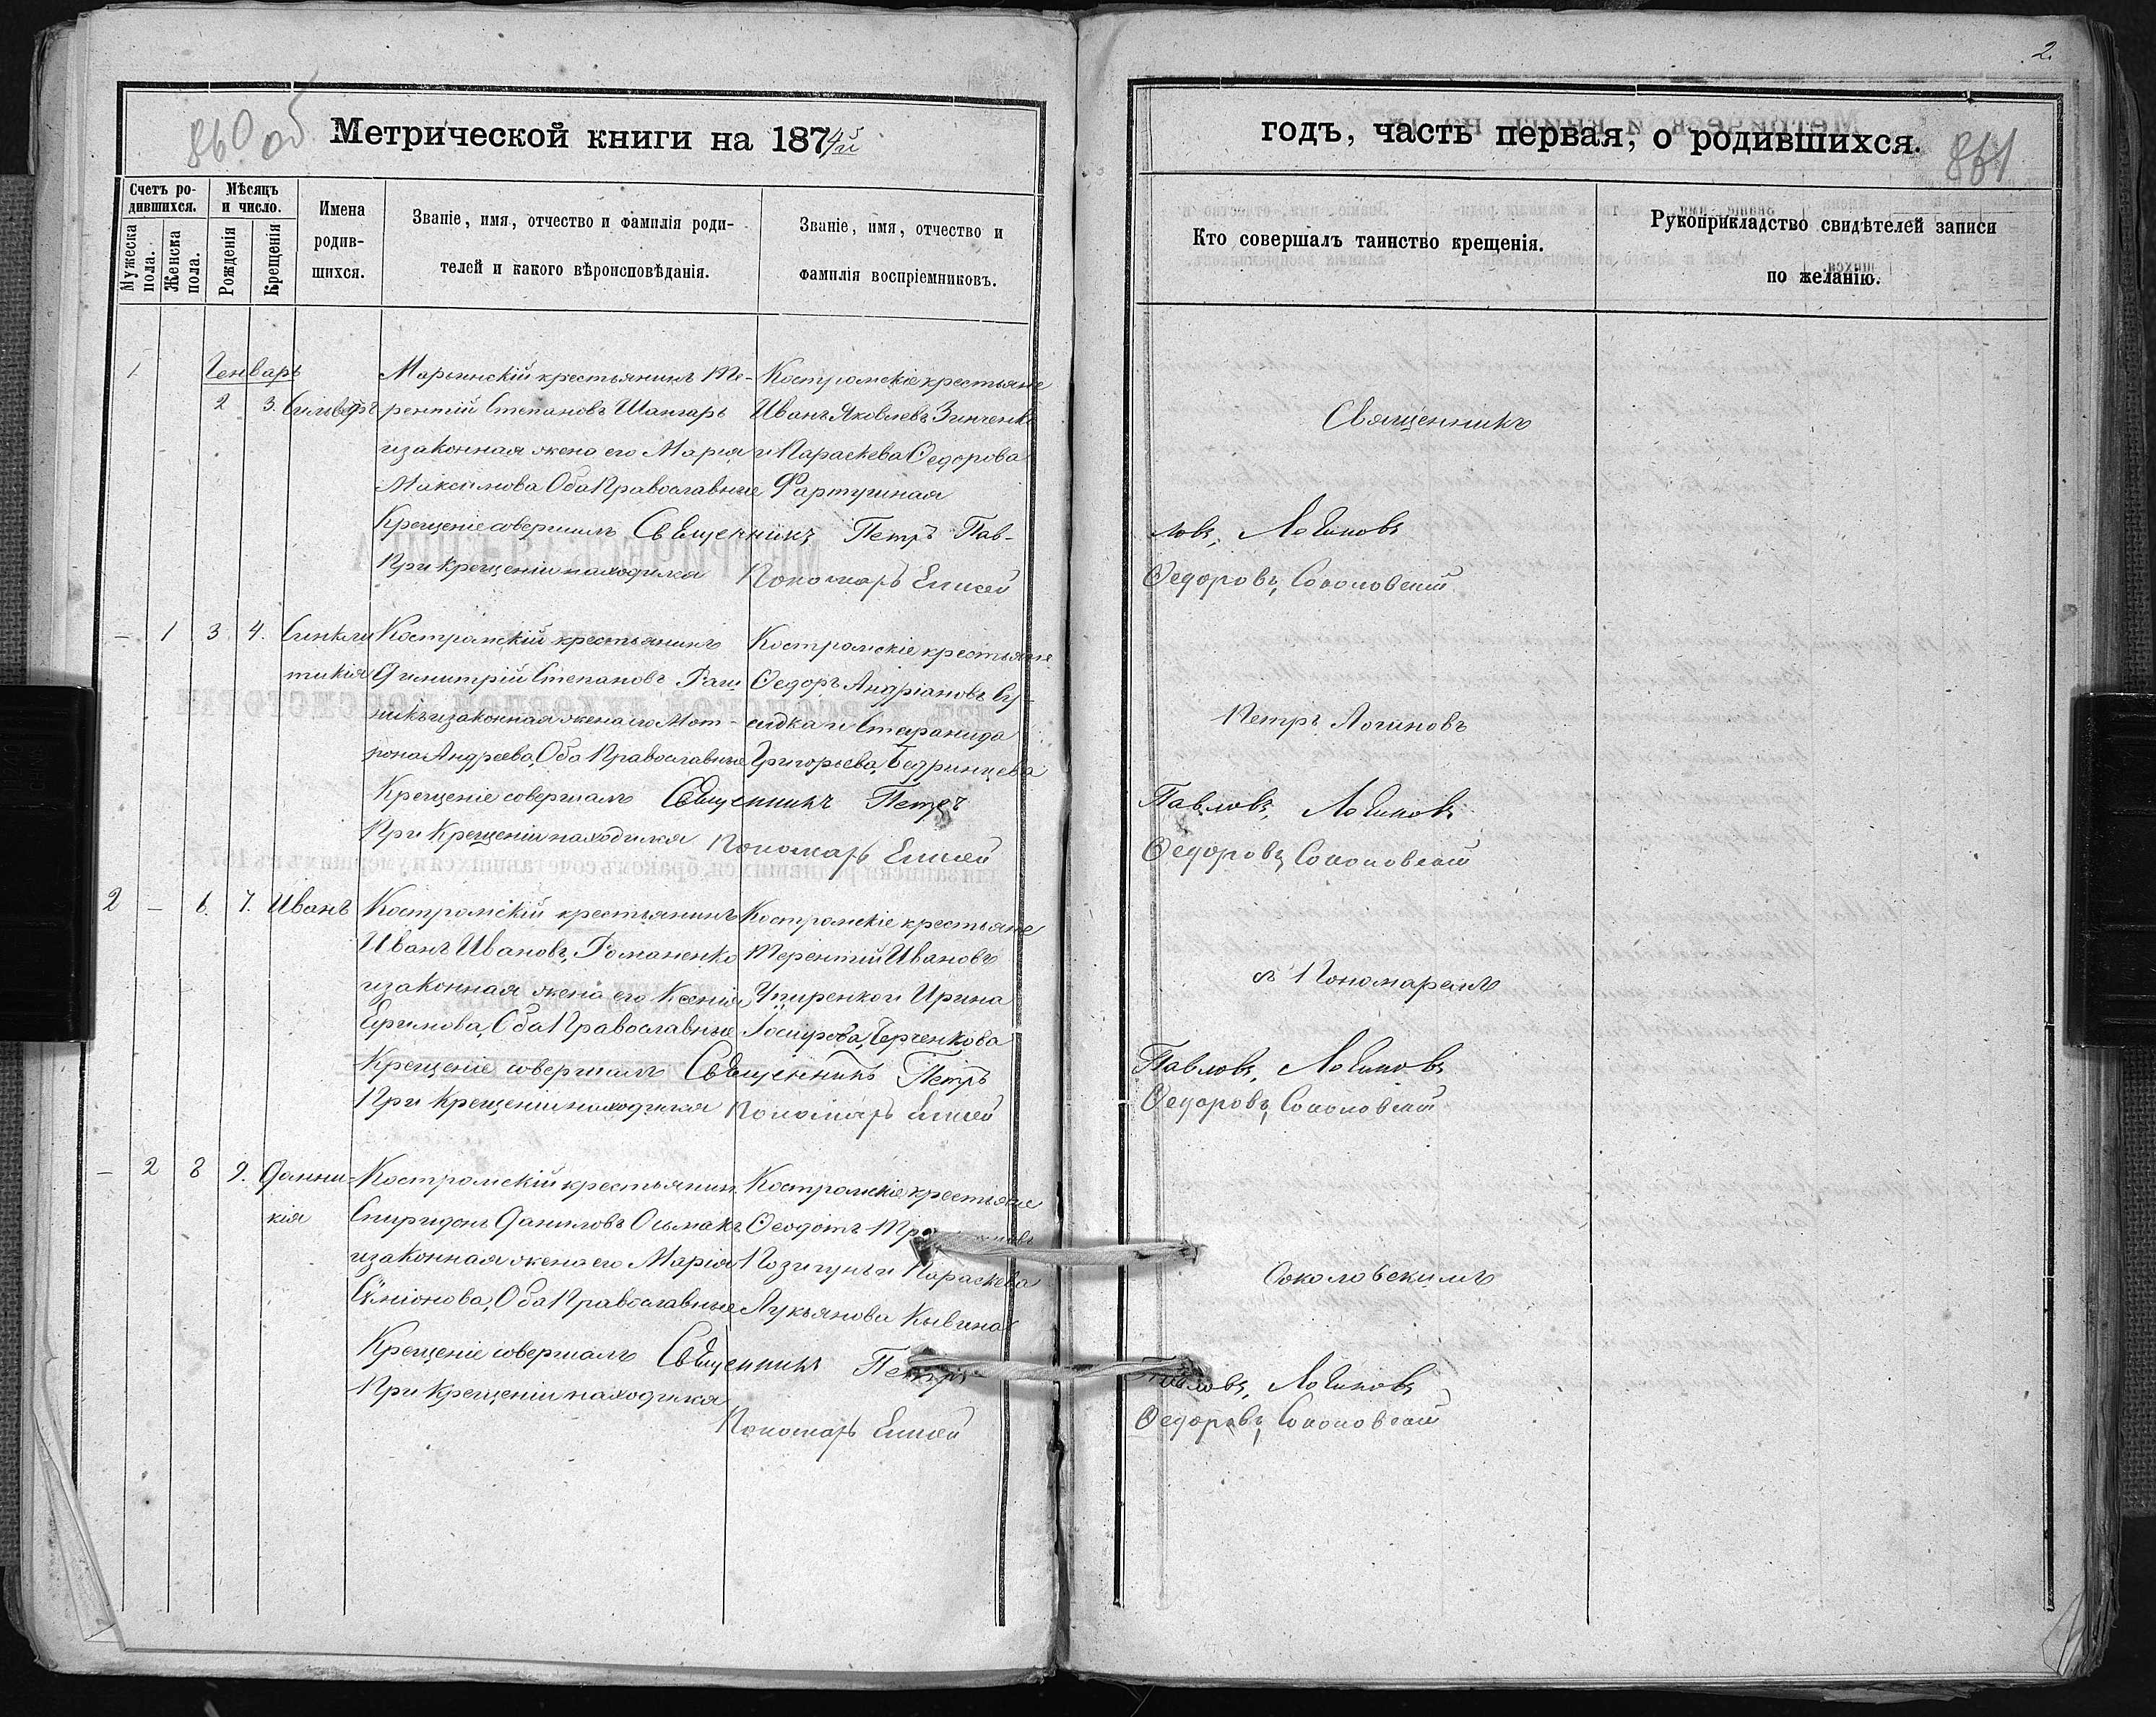 860 об
Метрической книги на 1874й
Счетъ ро-
дившихся.
Мужеска
пола.
Женска
пола.
Мѣсяцъ
и число.
Рожденія
Крещенія
Имена
родив-
шихся.
Званіе, имя, отчество и фамилія роди-
телей и какого вѣроисповѣданія.
Званіе, имя, отчество и
фамилія воспріемниковъ.
1 Генварь
2 3. Сильвестръ
Марьинскій крестьянинъ Те-
рентій Степановъ Шапгаръ
и законная жена его Марія
Максимова Оба Православные
Костромскіе крестьяне
Иванъ Яковлевъ Зинченко
и Параскева Ѳедорова
Крещеніе совершалъ Священникъ Петръ Пав-
При Крещеніи находился Пономарь Елисей
– 1 3 4. Синкли
тикія
Костромскій крестьянинъ
Димитрій Степановъ
и законная жена его Мат-
рона Андреева, Оба Православные
Костромскіе крестьяне
Ѳедоръ Андріановъ
и Стефанида
Григорьева, Бедринцева
Крещеніе совершалъ Священникъ Петръ
При Крещеніи находился Пономарь Елисей
2 – 6. 7. Иванъ
Костромскій крестьянинъ
Иванъ Ивановъ, Романенко
и законная жена его Ксенія
Ефимова, Оба Православные
Костромскіе крестьяне
Терентій Ивановъ
и Ирина
Крещеніе совершалъ Священникъ Петръ
При Крещеніи находился Пономарь Елисей
– 2 8 9. Домни-
кія
Костромскій крестьянин.
Спиридонъ Даниловъ Осьмакъ
и законная жена его Марія
Симіонова, Оба Православные
Костромскіе крестьяне
Ѳеодотъ
и Параскева
Лукьянова
Крещеніе совершалъ Священникъ Петръ
При Крещеніи находился
Пономарь Елисей
2.
годъ, часть первая, о родившихся.
861
Кто совершалъ таинство крещенія.
Рукоприкладство свидѣтелей записи
по желанію.
Священникъ
ловъ, Логиновъ
Ѳедоровъ, Соколовскій
Петръ Логиновъ
Павловъ, Логиновъ
Ѳедоровъ, Соколовскій
съ Пономаремъ
Павловъ, Логиновъ
Ѳедоровъ, Соколовскій
Соколовскимъ
Павловъ, Логиновъ
Ѳедоровъ, Соколовскій